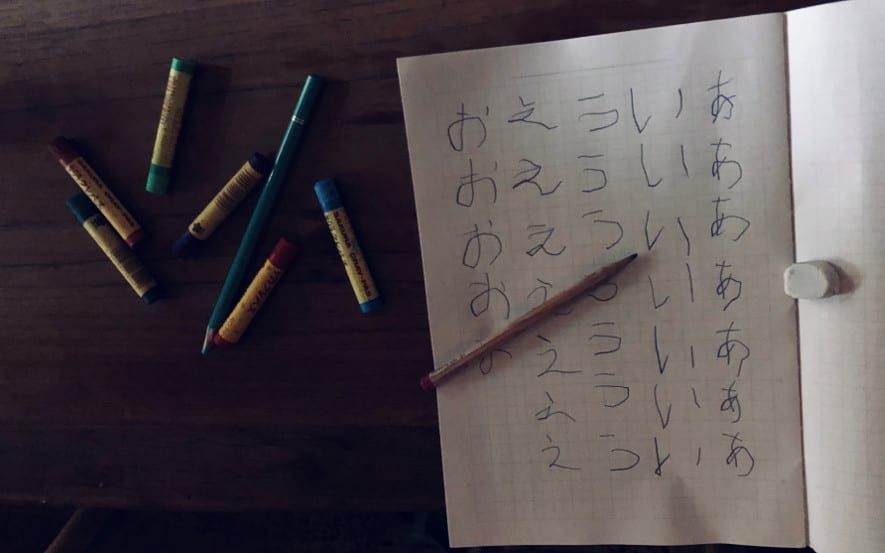 あああああああ
いいいいいいい
ううううううう
えええええええ
おおおおお